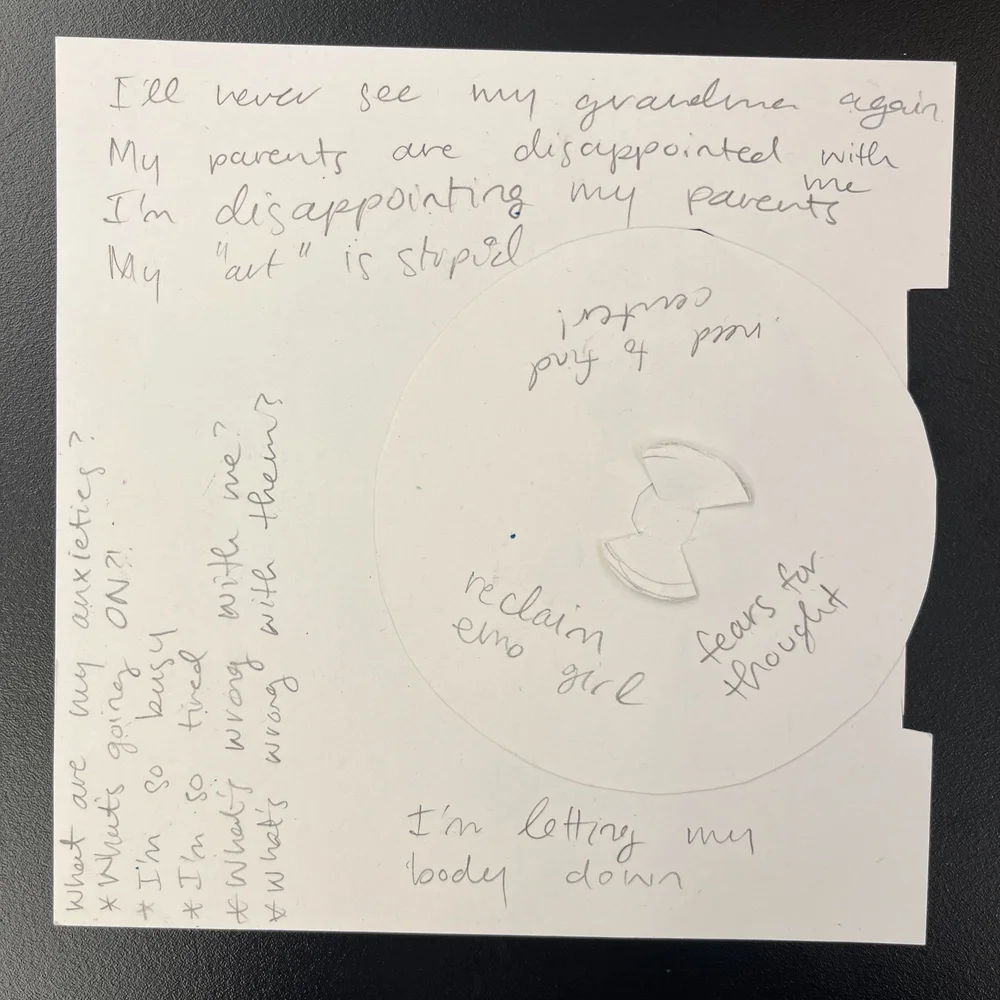 I'll never see my grandma again
My parents are disappointed with me
I'm disappointing my parents
My "art" is stupid
need to find
center!
reclaim
emo girl
fears for
thought
I'm letting my
body down
What are my anxieties?
* What's going ON?!
* I'm so busy
* I'm so tired
* What's wrong with me?
* What's wrong with them?